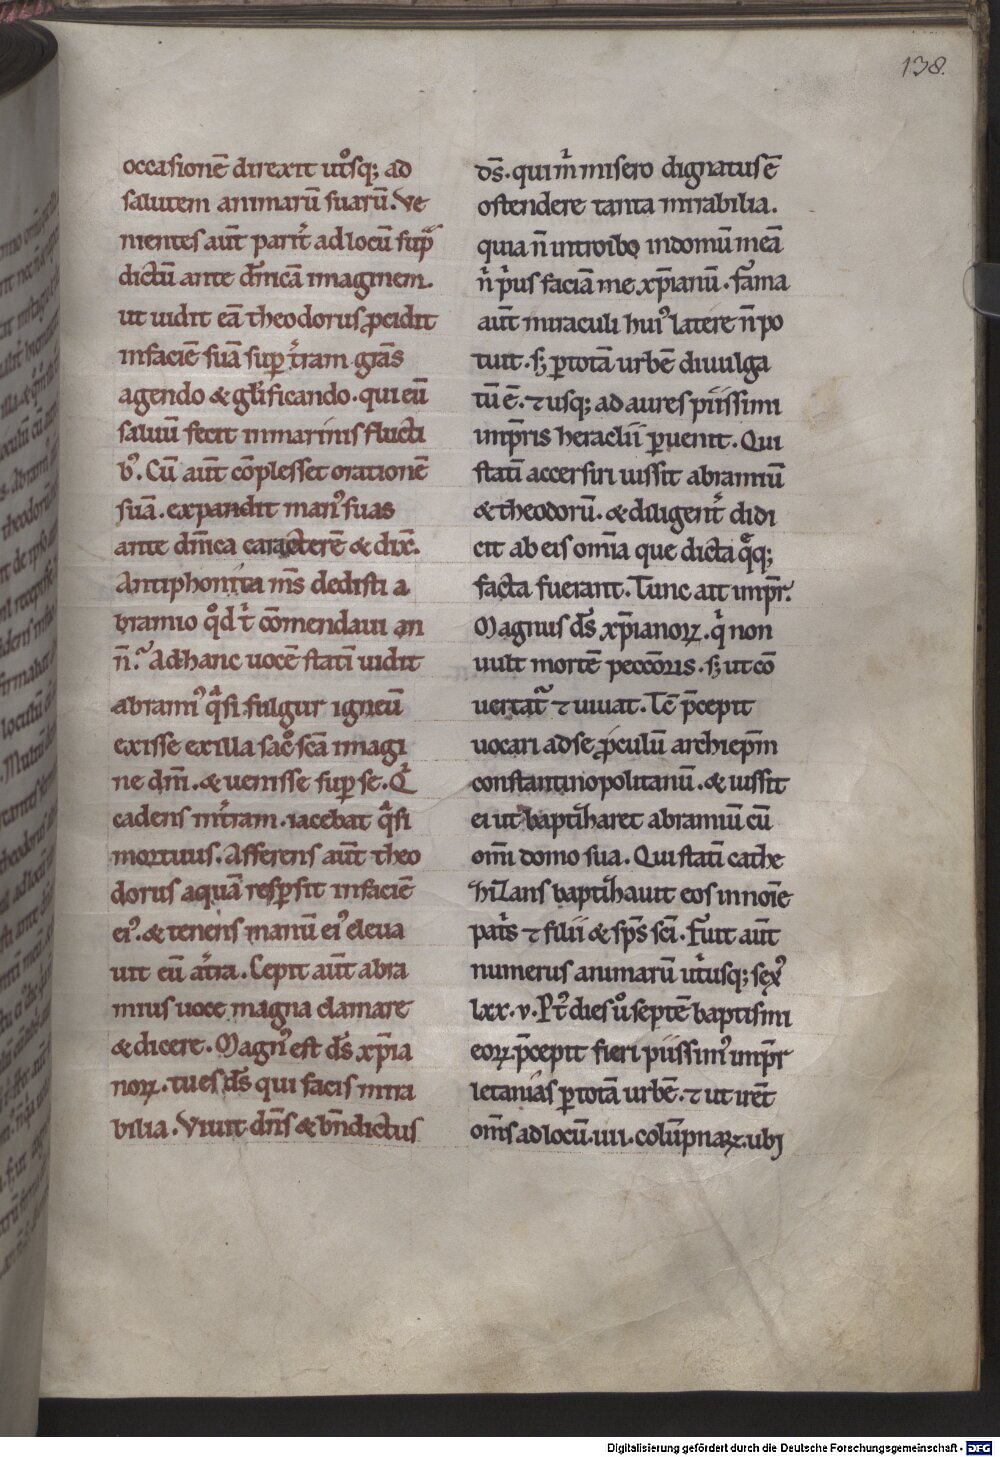 138.
occasionē direxit ut͛osq; ad
salutem animarū suarū. Ve
nientes aūt parit̄ ad locū sup̄
dictū ante dn̄icā imaginem.
ut uidit eā theodorus ꝓcidit
in faciē suā suꝑ t̄ram grās
agendo & gl̄ificando. qui eū
saluū fecit in marinis flucti
b᾽. Cū aūt cōplesset orationē
suā. expandit man᾽ suas
ante dn̄ica caracterē & dix̄.
Antiphonita m̄s dedisti a
bramio qd̄ t̄ cōmendaui an
n̄. Ad hanc uocē statī uidit
abrami᾽ qͣsi fulgur igneū
exisse ex illa sac̄o sc̄a imagi
ne dn̄i. & uenisse suꝑ se. Qͥ
cadens in t̄ram. iacebat qͣsi
mortuus. Afferens aūt theo
dorus aquā resꝑsit in faciē
ei᾽. & tenens manū ei᾽ eleua
uit eū a t̄ra. Cepit aūt abra
mius uoce magna clamare
& dicere. Magn᾽ est ds̄ xp̄ia
noꝝ. tu es ds̄ qui facis mira
bilia. Viuit dn̄s & bn̄dictus
ds̄. qui m̄ misero dignatus ē
ostendere tanta mirabilia.
quia n̄ introibo in domū meā
nͥ pͥus faciā me xp̄ianū. Fama
aūt miraculi hui᾽ latere n̄ po
tuit. s; ꝑ totā urbē diuulga
tū ē. ⁊ usq; ad aures piissimi
imp̄ris heraclii ꝑuenit. Qui
statī accersiri iussit abramiū
& theodorū. & diligent̄ didi
cit ab eis om̄ia que dicta qͣq;
facta fuerant. Tunc ait imp̄r.
Magnus ds̄ xp̄ianoꝝ. qͥ non
uult mortē peccōris. s; ut cō
uertat̄ ⁊ uiuat. Tc̄ p̄cepit
uocari ad se ꝓculū archiep̄m
constantinopolitanū. & iussit
ei ut baptiharet abramiū cū
om̄i domo sua. Qui statī cathe
hiZans baptihauit eos in noīe
pat̄s ⁊ filii & sp̄s sc̄i. Fuit aūt
numerus animarū ut̄usq; sex᾽
lxx.v. P᾽t dies u͛o septē baptismi
eoꝝ. p̄cepit fieri piissim᾽ imp̄r
letanias ꝑ totā urbē. ⁊ ut irēt
om̄s ad locū .iiii. colūpnaꝝ. ubj
Digitalisierung gefördert durch die Deutsche Forschungsgemeinschaft - DFG